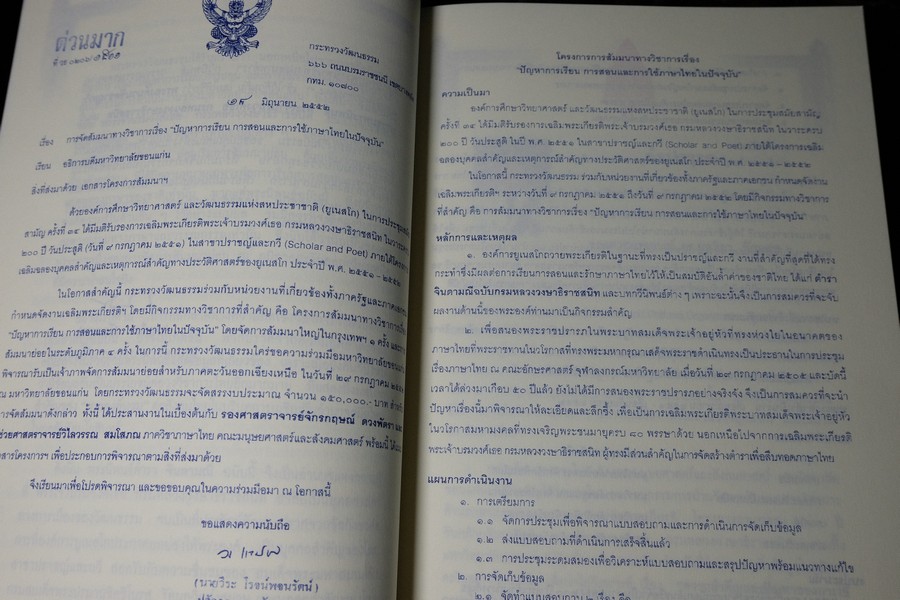 ด่วนมาก
กระทรวงวัฒนธรรม
๖๖๖ ถนนบรมราชชนนี
กทม. ๑๐๗๐๐
มิถุนายน ๒๕๕๒
เรื่อง การจัดสัมมนาทางวิชาการเรื่อง "ปัญหาการเรียน การสอนและการใช้ภาษาไทยในปัจจุบัน"
เรียน อธิการบดีมหาวิทยาลัยขอนแก่น
สิ่งที่ส่งมาด้วย เอกสารโครงการสัมมนาฯ
ด้วยองค์การศึกษาวิทยาศาสตร์ และวัฒนธรรมแห่งสหประชาชาติ (ยูเนสโก) ในการประชุม
สามัญ ครั้งที่ ๓๔ ได้มีมติรับรองการเฉลิมพระเกียรติพระเจ้าบรมวงศ์เธอ กรมหลวงวงษาธิราชสนิท ในวาระ
๒๐๐ ปี วันประสูติ (วันที่ ๙ กรกฎาคม ๒๕๕๑) ในสาขาปราชญ์และกวี (Scholar and Poet) ภายใต้โครงการ
เฉลิมฉลองบุคคลสำคัญและเหตุการณ์สำคัญทางประวัติศาสตร์ของยูเนสโก ประจำปี พ.ศ. ๒๕๕๑ – ๒๕๕๒
ในโอกาสสำคัญนี้ กระทรวงวัฒนธรรมร่วมกับหน่วยงานที่เกี่ยวข้องทั้งภาครัฐและภาคเอกชน
กำหนดจัดงานเฉลิมพระเกียรติฯ โดยมีกิจกรรมทางวิชาการที่สำคัญ คือ โครงการสัมมนาทางวิชาการเรื่อง
"ปัญหาการเรียน การสอนและการใช้ภาษาไทยในปัจจุบัน" โดยจัดการสัมมนาใหญ่ในกรุงเทพฯ ๑ ครั้ง และการ
สัมมนาย่อยในระดับภูมิภาค ๔ ครั้ง ในการนี้ กระทรวงวัฒนธรรมใคร่ขอความร่วมมือมหาวิทยาลัยขอนแก่น
พิจารณารับเป็นเจ้าภาพจัดการสัมมนาย่อยสำหรับภาคตะวันออกเฉียงเหนือ ในวันที่ ๒๙ กรกฎาคม
ณ มหาวิทยาลัยขอนแก่น โดยกระทรวงวัฒนธรรมจะจัดสรรงบประมาณ จำนวน ๑๕๐,๐๐๐.- บาท
การจัดสัมมนาดังกล่าว ทั้งนี้ ได้ประสานงานในเบื้องต้นกับ รองศาสตราจารย์จักรกฤษณ์ ดวงพัตรา และ
ช่วยศาสตราจารย์วิไลวรรณ สมโสภณ ภาควิชาภาษาไทย คณะมนุษยศาสตร์และสังคมศาสตร์ พร้อมนี้
สารโครงการฯ เพื่อประกอบการพิจารณาตามสิ่งที่ส่งมาด้วย
จึงเรียนมาเพื่อโปรดพิจารณา และขอขอบคุณในความร่วมมือมา ณ โอกาสนี้
ขอแสดงความนับถือ
(นายวีระ โรจน์พจนรัตน์)
โครงการการสัมมนาทางวิชาการเรื่อง
"ปัญหาการเรียน การสอนและการใช้ภาษาไทยในปัจจุบัน"
ความเป็นมา
องค์การศึกษาวิทยาศาสตร์ และวัฒนธรรมแห่งสหประชาชาติ (ยูเนสโก) ในการประชุมสมัยสามัญ
ครั้งที่ ๓๔ ได้มีมติรับรองการเฉลิมพระเกียรติพระเจ้าบรมวงศ์เธอ กรมหลวงวงษาธิราชสนิท ในวาระครบ
๒๐๐ ปี วันประสูติ ในปี พ.ศ. ๒๕๕๑ ในสาขาปราชญ์และกวี (Scholar and Poet) ภายใต้โครงการเฉลิม
ฉลองบุคคลสำคัญและเหตุการณ์สำคัญทางประวัติศาสตร์ของยูเนสโก ประจำปี พ.ศ. ๒๕๕๑ – ๒๕๕๒
ในโอกาสนี้ กระทรวงวัฒนธรรม ร่วมกับหน่วยงานที่เกี่ยวข้องทั้งภาครัฐและภาคเอกชน กำหนดจัดงาน
เฉลิมพระเกียรติฯ ระหว่างวันที่ ๙ กรกฎาคม ๒๕๕๑ ถึงวันที่ ๙ กรกฎาคม ๒๕๕๒ โดยมีกิจกรรมทางวิชาการ
ที่สำคัญ คือ การสัมมนาทางวิชาการเรื่อง "ปัญหาการเรียน การสอนและการใช้ภาษาไทยในปัจจุบัน"
หลักการและเหตุผล
๑. องค์การยูเนสโกถวายพระเกียรติในฐานะที่ทรงเป็นปราชญ์และกวี งานที่สำคัญที่สุดที่ได้ทรง
กระทำซึ่งมีผลต่อการเรียนการสอนและรักษาภาษาไทยไว้ให้เป็นสมบัติอันล้ำค่าของชาติไทย ได้แก่ ตำรา
จินดามณีฉบับกรมหลวงวงษาธิราชสนิท และบทกวีนิพนธ์ต่าง ๆ เพราะฉะนั้นจึงเป็นการสมควรที่จะจับ
ผลงานด้านนี้ของพระองค์ท่านมาเป็นกิจกรรมสำคัญ
๒. เพื่อสนองพระราชปรารภในพระบาทสมเด็จพระเจ้าอยู่หัวที่ทรงห่วงใยในอนาคตของ
ภาษาไทยที่พระราชทานในวโรกาสที่ทรงพระมหากรุณาเสด็จพระราชดำเนินทรงเป็นประธานในการประชุม
เรื่องภาษาไทย ณ คณะอักษรศาสตร์ จุฬาลงกรณ์มหาวิทยาลัย เมื่อวันที่ ๒๙ กรกฎาคม ๒๕๐๕ และบัดนี้
เวลาได้ล่วงมาเกือบ ๕๐ ปีแล้ว ยังไม่ได้มีการสนองพระราชปรารภอย่างจริงจัง จึงเป็นการสมควรที่จะนำ
ปัญหาเรื่องนี้มาพิจารณาให้ละเอียดและลึกซึ้ง เพื่อเป็นการเฉลิมพระเกียรติพระบาทสมเด็จพระเจ้าอยู่หัว
ในวโรกาสมหามงคลที่ทรงเจริญพระชนมายุครบ ๘๐ พรรษาด้วย นอกเหนือไปจากการเฉลิมพระเกียรติ
พระเจ้าบรมวงศ์เธอ กรมหลวงวงษาธิราชสนิท ผู้ทรงมีส่วนสำคัญในการจัดสร้างตำราเพื่อสืบทอดภาษาไทย
แผนการดำเนินงาน
๑. การเตรียมการ
๑.๑ จัดการประชุมเพื่อพิจารณาแบบสอบถามและการดำเนินการจัดเก็บข้อมูล
๑.๒ ส่งแบบสอบถามที่ดำเนินการเสร็จสิ้นแล้ว
๑.๓ การประชุมระดมสมองเพื่อวิเคราะห์แบบสอบถามและสรุปปัญหาพร้อมแนวทางแก้ไข
๒. การจัดเก็บข้อมูล
๒.๑ จัดทำแบบสอบถาม ๒ เรื่อง คือ